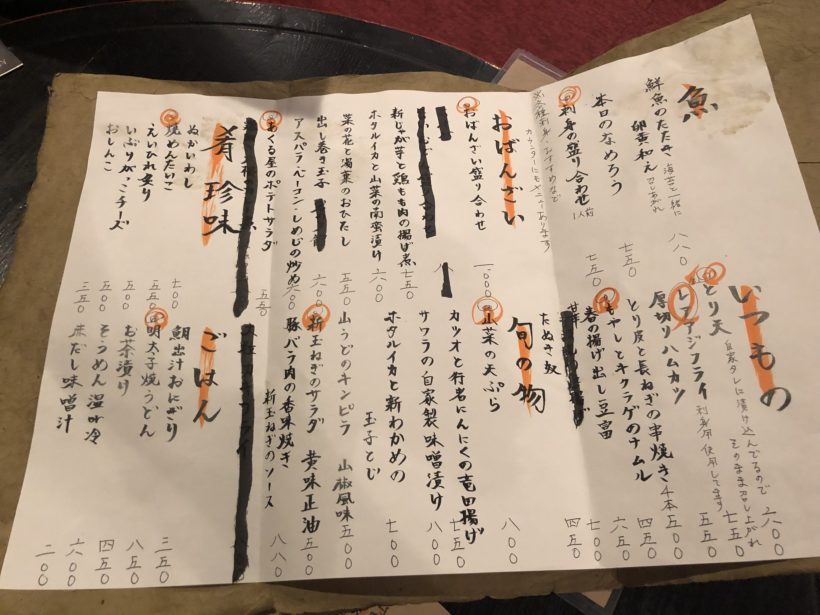 魚
鮮魚のたたき 海苔と一緒に
卵黄和え 召しあがれ
八八〇
本日のなめろう
七五〇
刺身の盛り合わせ 1人前
おばんざい
おばんざい盛り合わせ
一、〇〇〇
新じゃが芋と鶏もも肉の揚げ煮
七五〇
ホタルイカと山菜の南蛮漬け
菜の花と湯葉のおひたし
五五〇
出し巻き玉子
六〇〇
アスパラ・ベーコン・しめじの炒め
六〇〇
あくる屋のポテトサラダ
五五〇
肴 珍味
ぬかいわし
七〇〇
焼めんたいこ
五五〇
えいひれ炙り
五〇〇
いぶりがっこチーズ
五〇〇
おしんこ
三五〇
いつもの
とり天 自家タレに漬け込んでるので
そのまま召し上がれ
七五〇
アジフライ 刺身用使用してます
五五〇
厚切りハムカツ
五〇〇
とり皮と長ねぎの串焼き 4本
四五〇
もやしとキクラゲのナムル
六五〇
春の揚げ出し豆富
七〇〇
たぬき奴
四五〇
旬の物
山菜の天ぷら
八〇〇
カツオと行者にんにくの竜田揚げ
七五〇
サワラの自家製味噌漬け
八〇〇
ホタルイカと新わかめの
玉子とじ
七〇〇
山うどのキンピラ 山椒風味
五〇〇
新玉ねぎのサラダ 黄味正油
五〇〇
豚バラ肉の香味焼き
新玉ねぎのソース
八八〇
ごはん
鯛出汁おにぎり
三五〇
明太子焼うどん
八五〇
お茶漬け
四五〇
そうめん 温or冷
六〇〇
赤だし味噌汁
二〇〇